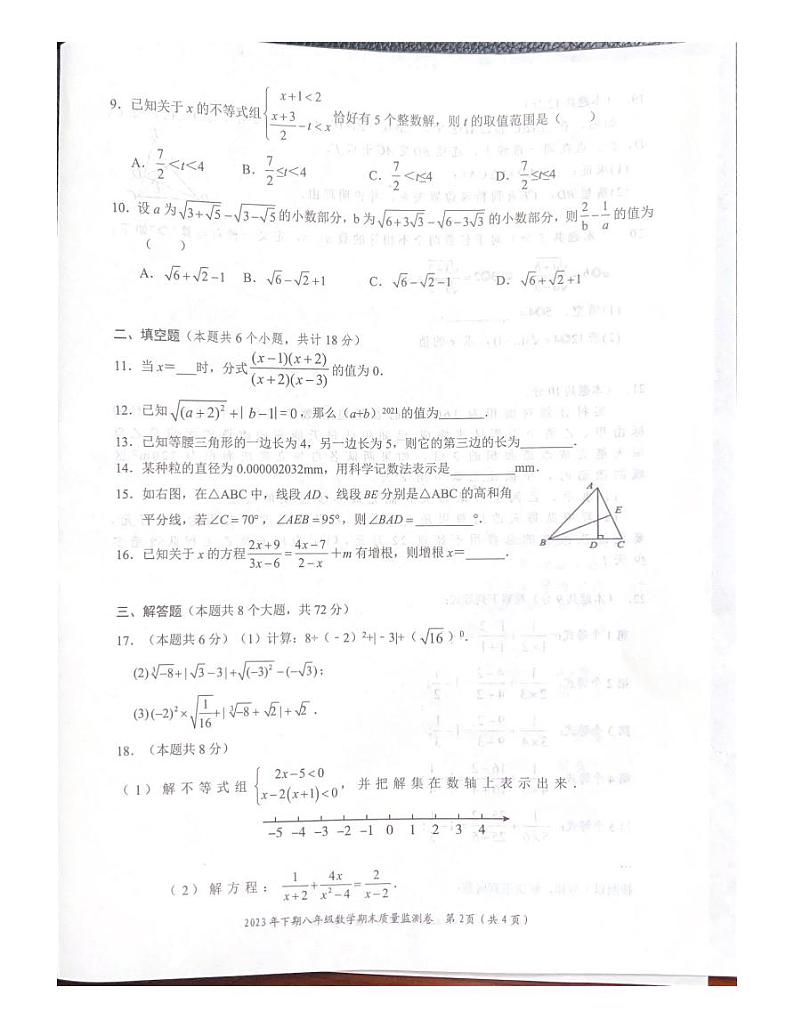 9. 已知关于 x 的不等式组 { x+1<2, (x+3)/2 - t < x 恰好有 5 个整数解，则 t 的取值范围是（    ）
A. 7/2<t<4 B. 7/2≤t<4 C. 7/2<t≤4 D. 7/2≤t≤4
10. 设 a 为√(3+√5)-√(3-√5)的小数部分，b 为√(6+3√3)-√(6-3√3)的小数部分，则 2/b - 1/a 的值为
（    ）
A. √6+√2-1 B. √6-√2+1 C. √6-√2-1 D. √6+√2+1
二、填空题（本题共 6 个小题，共计 18 分）
11. 当 x=___时，分式 (x-1)(x+2)/(x+2)(x-3) 的值为 0.
12. 已知 √(a+2)²+|b-1|=0，那么（a+b）²⁰²¹ 的值为_______.
13. 已知等腰三角形的一边长为 4，另一边长为 5，则它的第三边的长为________.
14. 某种粒的直径为 0.000002032mm，用科学记数法表示是__________mm.
15. 如右图，在△ABC 中，线段 AD、线段 BE 分别是△ABC 的高和角
平分线，若∠C=70°，∠AEB=95°，则∠BAD=_________°.
A
E
B D C
16. 已知关于 x 的方程 (2x+9)/(3x-6)=(4x-7)/(2-x)+m 有增根，则增根 x=______.
三、解答题（本题共 8 个大题，共 72 分）
17. （本题共 6 分）（1）计算：8÷（-2）²+|-3|+（√16）⁰.
(2) ∛-8+|√3-3|+√(-3)²-(-√3)；
(3) (-2)²×√(1/16)+|∛-8+√2|+√2 .
18. （本题共 8 分）
（1）解不等式组 { 2x-5<0, x-2(x+1)<0 ，并把解集在数轴上表示出来.
-5 -4 -3 -2 -1 0 1 2 3 4
（2）解方程： 1/(x+2)+4x/(x²-4)=2/(x-2).
2023 年下期八年级数学期末质量监测卷 第 2页（共 4 页）